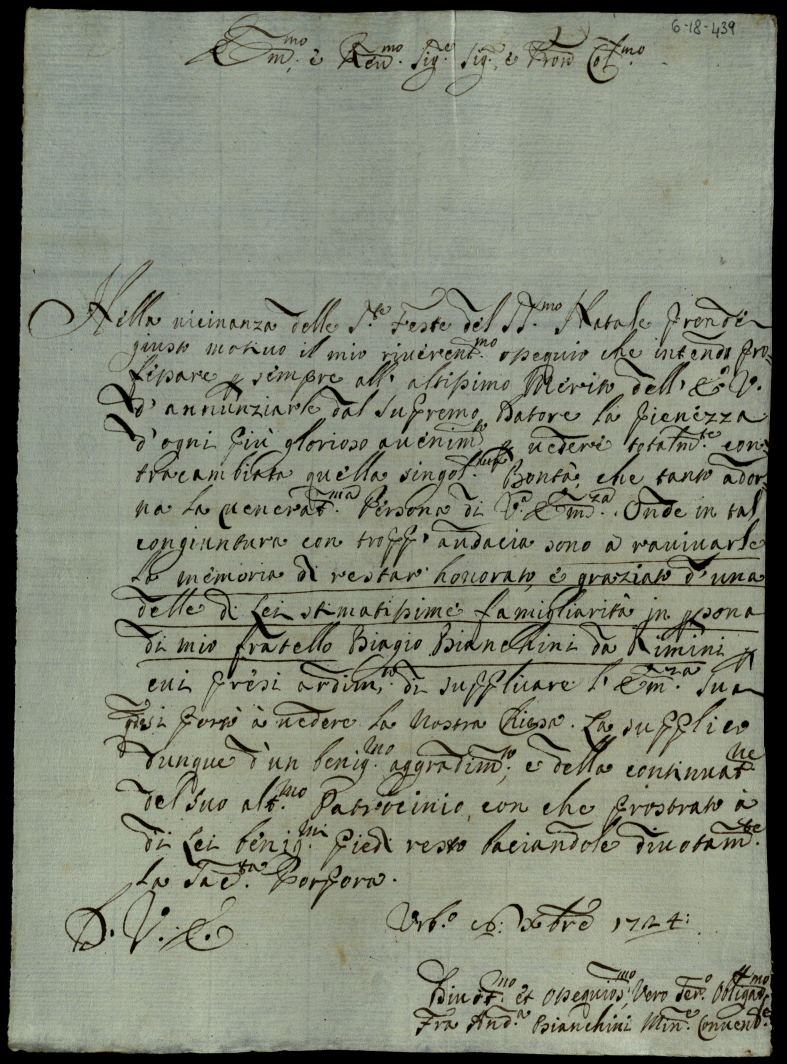 6-18-439
Em.mo, è Rev.mo Sig.e Sig.e, è Pron Col.mo
Nella uicinanza delle S.te Feste del SS.mo Natale prende
giusto motiuo il mio riuerent.mo ossequio che intendo pro-
fessare p sempre all' altissimo Merito dell' E. V.
d' annunziarle dal supremo Datore la pienezza
d' ogni più glorioso auenim.to p uedere totalm.te con-
tracambiata quella singol.ma Bontà, che tanto ador-
na la venerat.ma Persona di V.a Em.za. Onde in tal
congiuntura con tropp' audacia sono a rauiuarle
la memoria di restar honorato, è graziato d' una
delle di Lei stimatissime famigliarità in psona
di mio fratello Biagio Bianchini da Rimini p
cui presi ardim.to di supplicare l' Em.za Sua
portò à uedere la Nostra Chiesa. La supplico
dunque d' un benig.mo aggradim.to, e della continuat.ne
del suo alt.mo Patrocinio, con che prostrato à
di Lei benig.mi piedi resto baciandole diuotam.te
la Sac.ta Porpora.
D. V. E.
Urb.o Xbre 1724:
Diuot.mo et ossequios.mo Vero Ser.o Obligat.mo
Fra And.a Bianchini Min.e Conuent.e